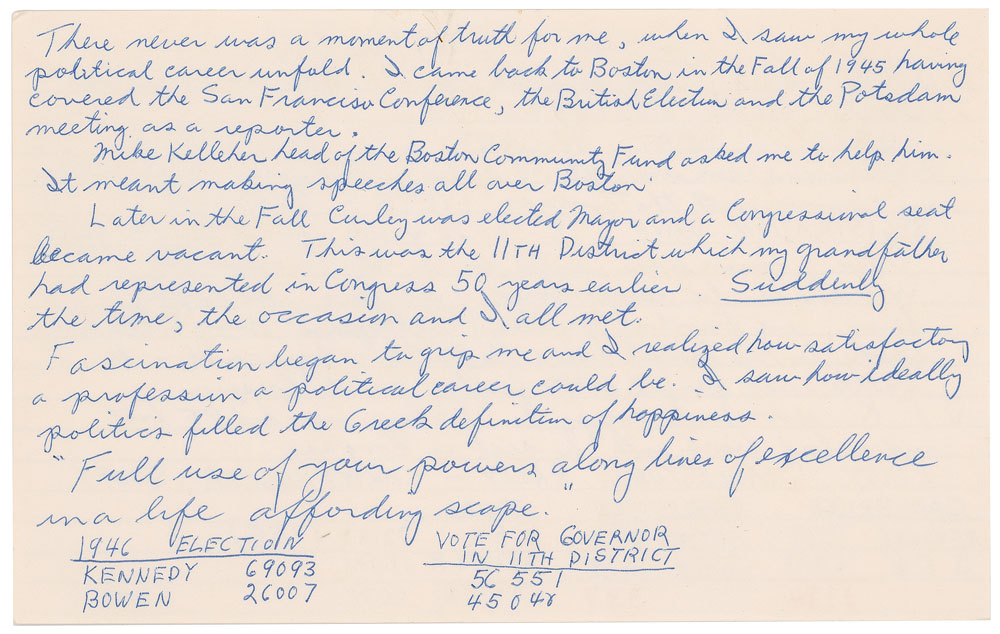 There never was a moment of truth for me, when I saw my whole
political career unfold. I came back to Boston in the Fall of 1945 having
covered the San Francisco Conference, the British Election and the Potsdam
meeting as a reporter.
Mike Kelleher head of the Boston Community Fund asked me to help him.
It meant making speeches all over Boston.
Later in the Fall Curley was elected Mayor and a Congressional seat
became vacant. This was the 11TH District which my grandfather
had represented in Congress 50 years earlier. Suddenly
the time, the occasion and I all met.
Fascination began to grip me and I realized how satisfactory
a profession a political career could be. I saw how ideally
politics filled the Greek definition of happiness.
"Full use of your powers along lines of excellence
in a life affording scope."
1946 ELECTION VOTE FOR GOVERNOR
IN 11TH DISTRICT
KENNEDY 69093 56 551
BOWEN 26007 45 048